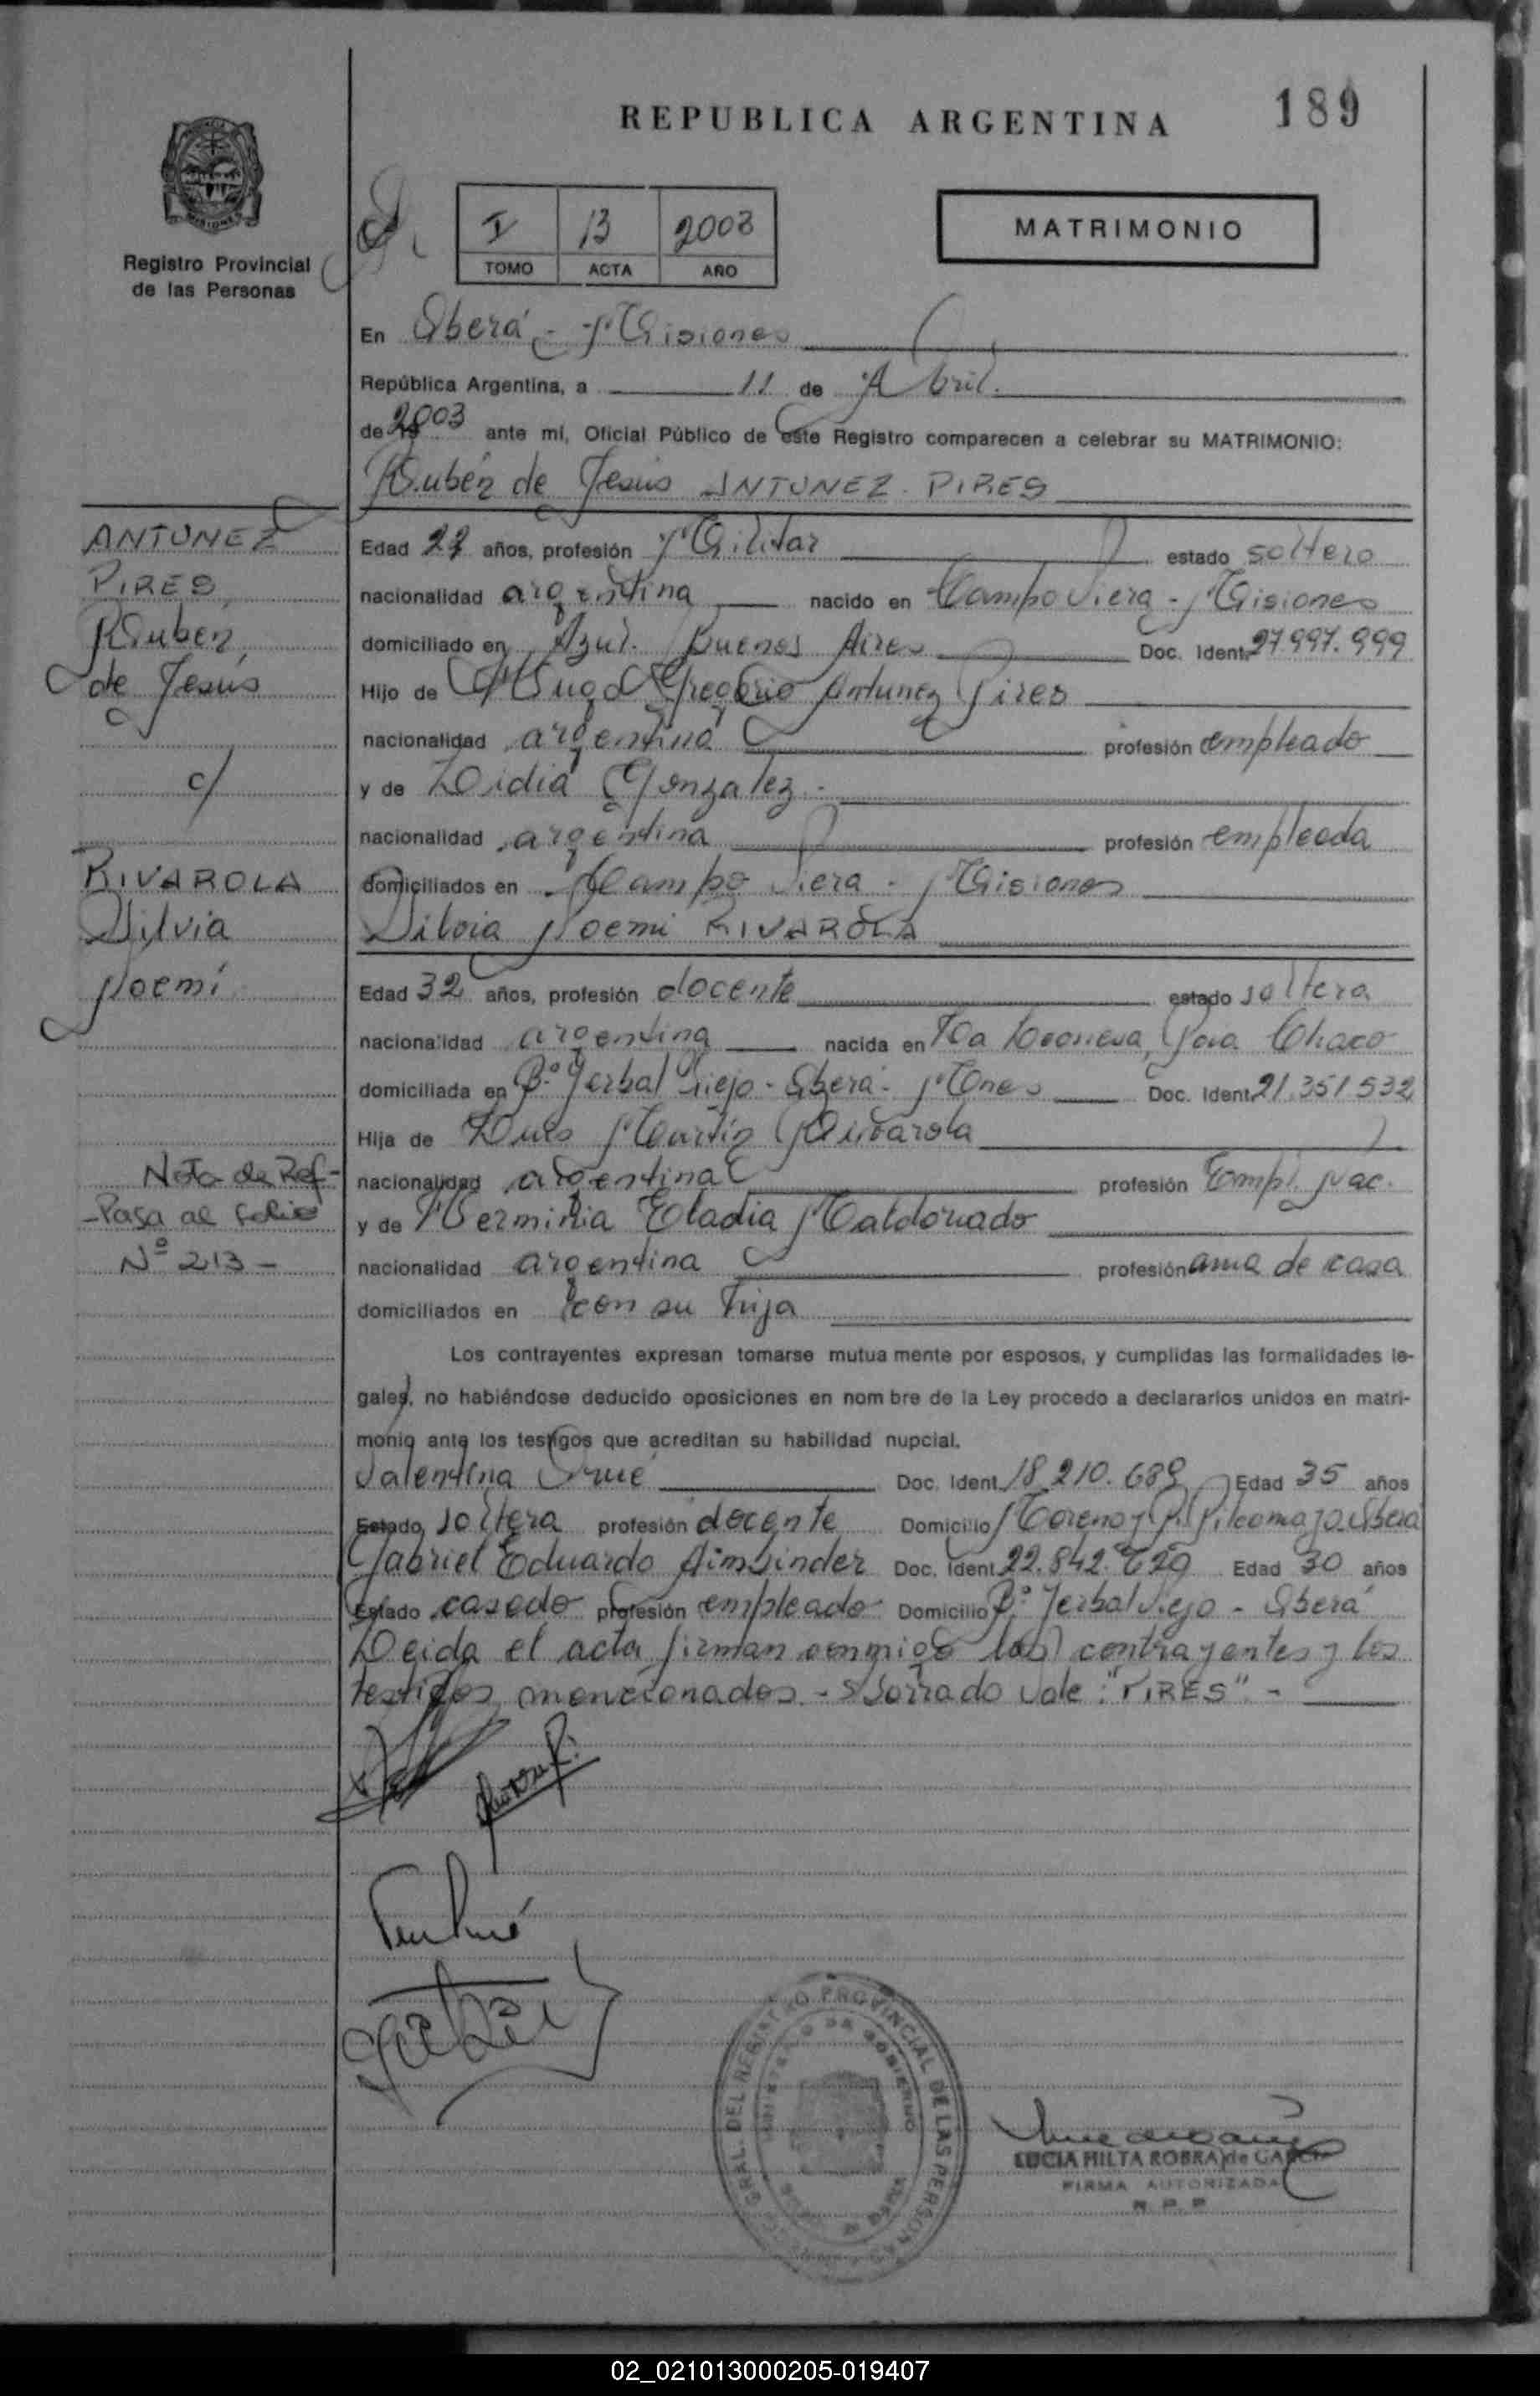 189
REPUBLICA ARGENTINA
MISIONES
Registro Provincial
de las Personas
I 13 2003
TOMO ACTA AÑO
MATRIMONIO
En Oberá - Misiones
República Argentina, a 11 de Abril.
de 2003 ante mí, Oficial Público de este Registro comparecen a celebrar su MATRIMONIO:
Rubén de Jesús ANTUNEZ PIRES
ANTUNEZ
PIRES
Ruben
de Jesús
c/
RIVAROLA
Silvia
Noemí
Nota de Ref-
-Pasa al folio
Nº 213-
Edad años, profesión Militar estado soltero
nacionalidad argentina nacido en Campo Viera - Misiones
domiciliado en Azul. Buenos Aires Doc. Ident. 27.997.999
Hijo de Hugo Gregorio Antunez Pires
nacionalidad argentina profesión empleado
y de Lidia Gonzalez.
nacionalidad argentina profesión empleada
domiciliados en Campo Viera - Misiones
Silvia Noemi RIVAROLA
Edad 32 años, profesión docente estado soltera
nacionalidad argentina nacida en La Chaco
domiciliada en Bº Yerbal Viejo - Oberá - Mnes Doc. Ident. 21.351.532
Hija de Luis Martín Rivarola
nacionalidad argentina profesión Empl. nac.
y de Herminia Eladia Maldonado
nacionalidad argentina profesión ama de casa
domiciliados en con su hija
Los contrayentes expresan tomarse mutua mente por esposos, y cumplidas las formalidades le-
gales, no habiéndose deducido oposiciones en nom bre de la Ley procedo a declararlos unidos en matri-
monio ante los testigos que acreditan su habilidad nupcial.
Valentina Orué Doc. Ident. 18.210.689 Edad 35 años
Estado soltera profesión docente Domicilio Moreno y Pilcomayo Oberá
Gabriel Eduardo Aimbinder Doc. Ident. 22.842.629 Edad 30 años
Estado casado profesión empleado Domicilio Bº Yerbal Viejo - Oberá
Leida el acta firman conmigo los contrayentes y los
testigos mencionados - s/borrado vale: "PIRES" -
GRAL. DEL REGISTRO PROVINCIAL DE LAS PERSONAS
LUCIA HILTA ROBRA de GARCIA
FIRMA AUTORIZADA
R. P. P.
02_021013000205-019407